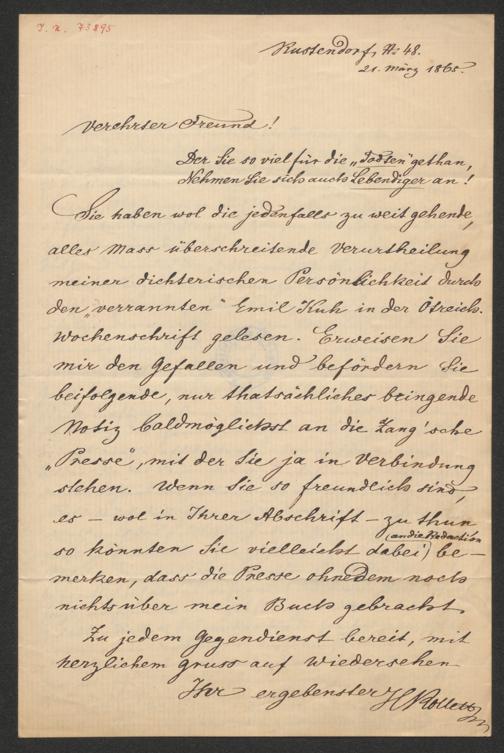 I. N. 73895
Rustendorf, No 48.
21. März 1865.
Verehrter Freund!
Der Sie so viel für die „Todten" gethan,
Nehmen Sie sich auch Lebendiger an!
Sie haben wol die jedenfalls zu weit gehende,
alles Mass überschreitende Verurtheilung
meiner dichterischen Persönlichkeit durch
den „verrannten" Emil Kuh in der Östreich.
Wochenschrift gelesen. Erweisen Sie
mir den Gefallen und befördern Sie
beifolgende, nur thatsächliches bringende
Notiz baldmöglichst an die Zang'sche
„Presse", mit der Sie ja in Verbindung
stehen. Wenn Sie so freundlich sind,
es – wol in Ihrer Abschrift – zu thun
(an die Redaction
so könnten Sie vielleicht dabei) be–
merken, dass die Presse ohnedem noch
nichts über mein Buch gebracht.
Zu jedem Gegendienst bereit, mit
herzlichem Gruss auf Wiedersehen
Ihr ergebenster HRollett